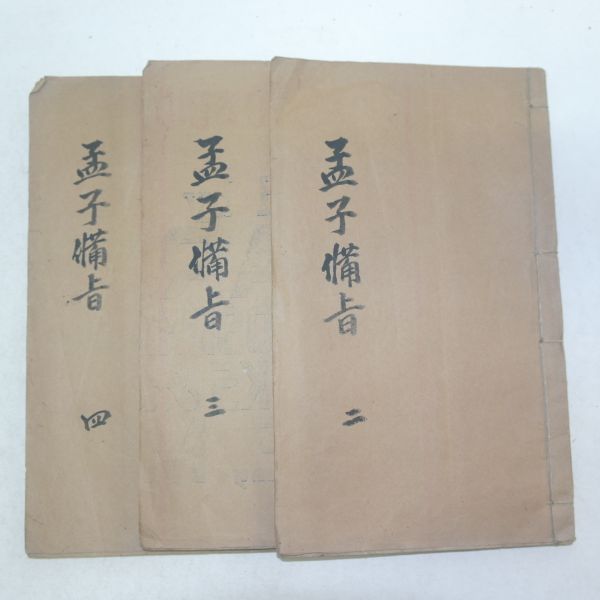 孟子備旨 二
孟子備旨 三
孟子備旨 四